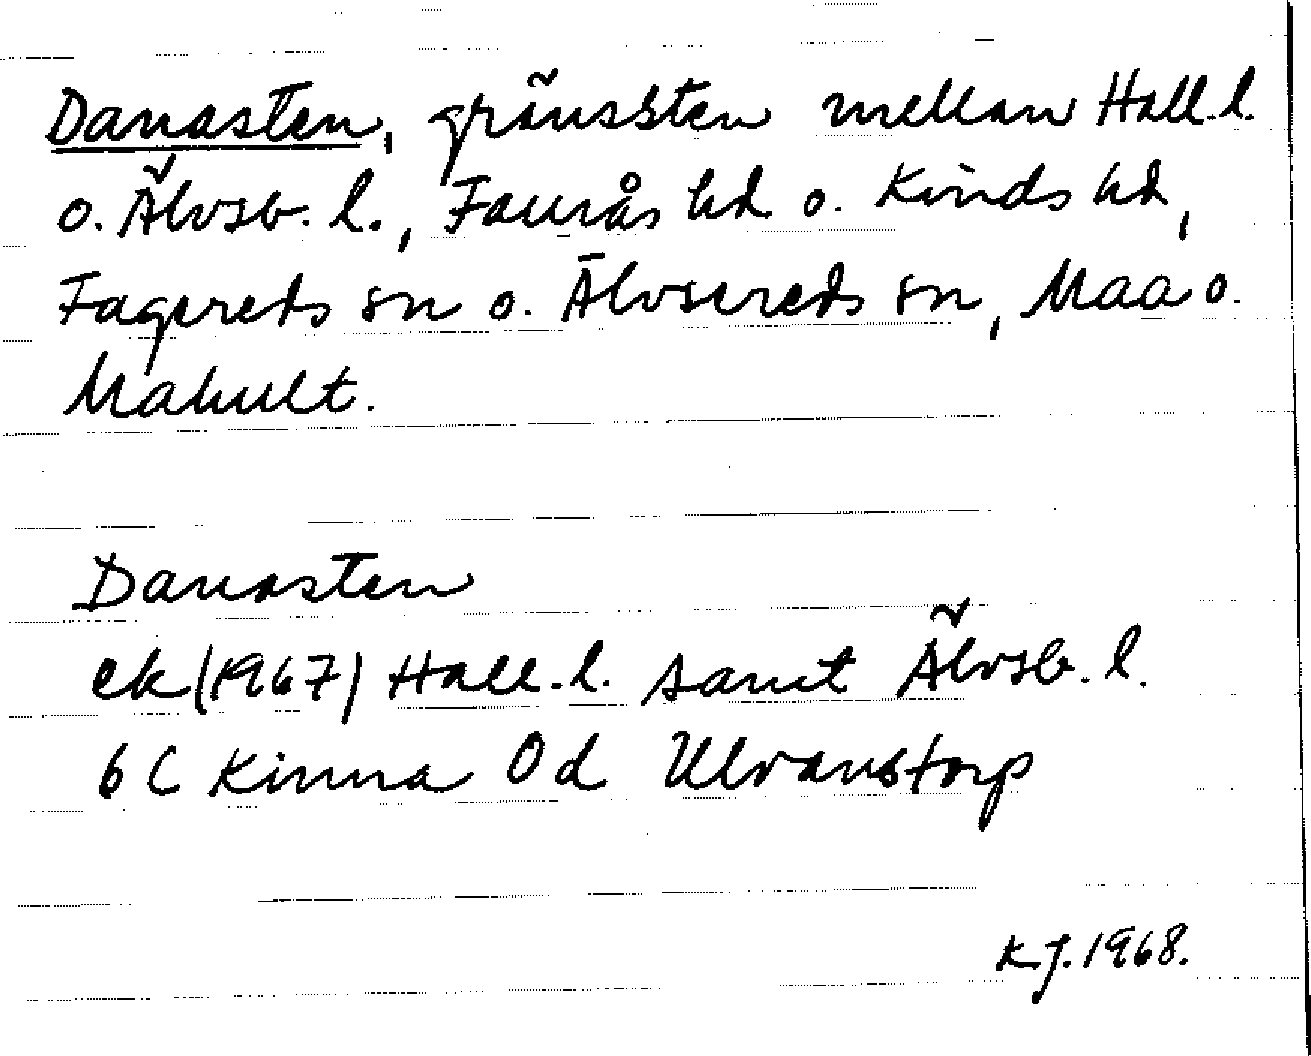 Danasten, gränssten mellan Hall.l.
o. Älvsb. l., Faurås hd o. Kinds hd,
Fagereds sn o. Älvsereds sn, Maa o.
Mahult.
Danasten
ek (1967) Hall.l. samt Älvsb. l.
6 C Kinna 0d Ulvanstorp
K.J. 1968.